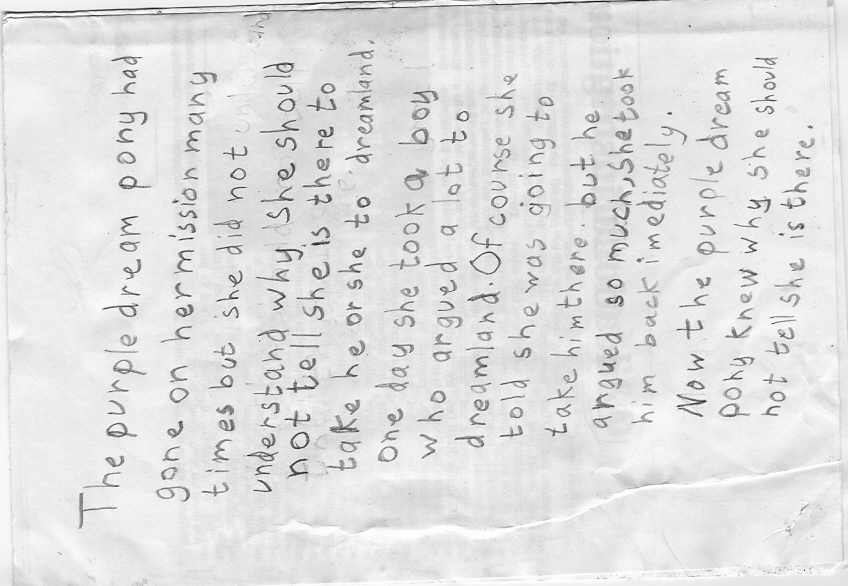 The purple dream pony had
gone on her mission many
times but she did not
understand why she should
not tell she is there to
take he or she to dreamland.
One day she took a boy
who argued a lot to
dreamland. Of course she
told she was going to
take him there. but he
argued so much, she took
him back imediately.
Now the purple dream
pony knew why she should
not tell she is there.